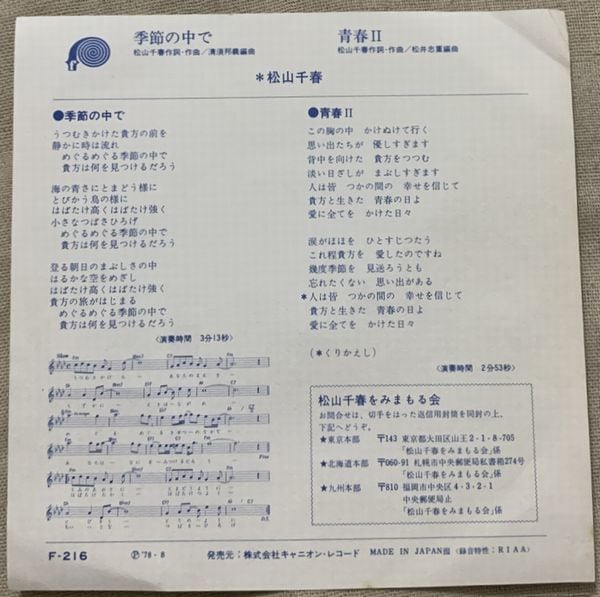 季節の中で
松山千春作詞・作曲／清須邦義編曲
青春II
松山千春作詞・作曲／松井忠重編曲
＊松山千春
●季節の中で
うつむきかけた貴方の前を
静かに時は流れ
めぐるめぐる季節の中で
貴方は何を見つけるだろう
海の青さにとまどう様に
とびかう鳥の様に
はばたけ高くはばたけ強く
小さなつばさひろげ
めぐるめぐる季節の中で
貴方は何を見つけるだろう
登る朝日のまぶしさの中
はるかな空をめざし
はばたけ高くはばたけ強く
貴方の旅がはじまる
めぐるめぐる季節の中で
貴方は何を見つけるだろう
〈演奏時間 3分13秒〉
●青春II
この胸の中 かけぬけて行く
思い出たちが 優しすぎます
背中を向けた 貴方をつつむ
淡い日ざしが まぶしすぎます
人は皆 つかの間の 幸せを信じて
貴方と生きた 青春の日よ
愛に全てを かけた日々
涙がほほを ひとすじつたう
これ程貴方を 愛したのですね
幾度季節を 見送ろうとも
忘れたくない 思い出がある
＊人は皆 つかの間の 幸せを信じて
貴方と生きた 青春の日よ
愛に全てを かけた日々
（＊くりかえし）
〈演奏時間 2分53秒〉
松山千春をみまもる会
お問合せは、切手をはった返信用封筒を同封の上、
下記へどうぞ。
★東京本部 〒143 東京都大田区山王2-1-8-705
「松山千春をみまもる会」係
★北海道本部 〒060-91 札幌市中央郵便局私書箱274号
「松山千春をみまもる会」係
★九州本部 〒810 福岡市中央区4-3-2-1
中央郵便局止
「松山千春をみまもる会」係
F-216 Ⓟ'78・8 発売元：株式会社キャニオン・レコード MADE IN JAPAN 〈録音特性：RIAA〉